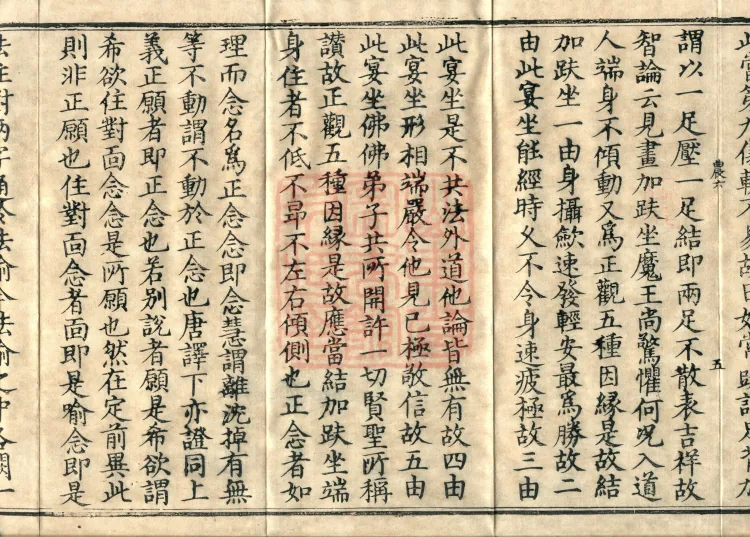 謂以一足壓一足結即兩足不散表吉祥故
智論云見畫加趺坐魔王尚驚懼何況入道
人端身不傾動又為正觀五種因緣是故結
加趺坐一由身攝歛速發輕安最為勝故二
由此宴坐能經時久不令身速疲極故三由
此宴坐是不共法外道他論皆無有故四由
此宴坐形相端嚴令他見已極敬信故五由
此宴坐佛佛弟子共所開許一切賢聖所稱
讃故正觀五種因緣是故應當結加趺坐端
身住者不低不昂不左右傾側也正念者如
理而念名為正念念即念慧謂離沈掉有無
等不動謂不動於正念也唐譯下亦證同上
義正願者即正念也若別說者願是希欲謂
希欲住對面念念是所願也然在定前異此
則非正願也住對面念者面即是喻念即是
農六
五